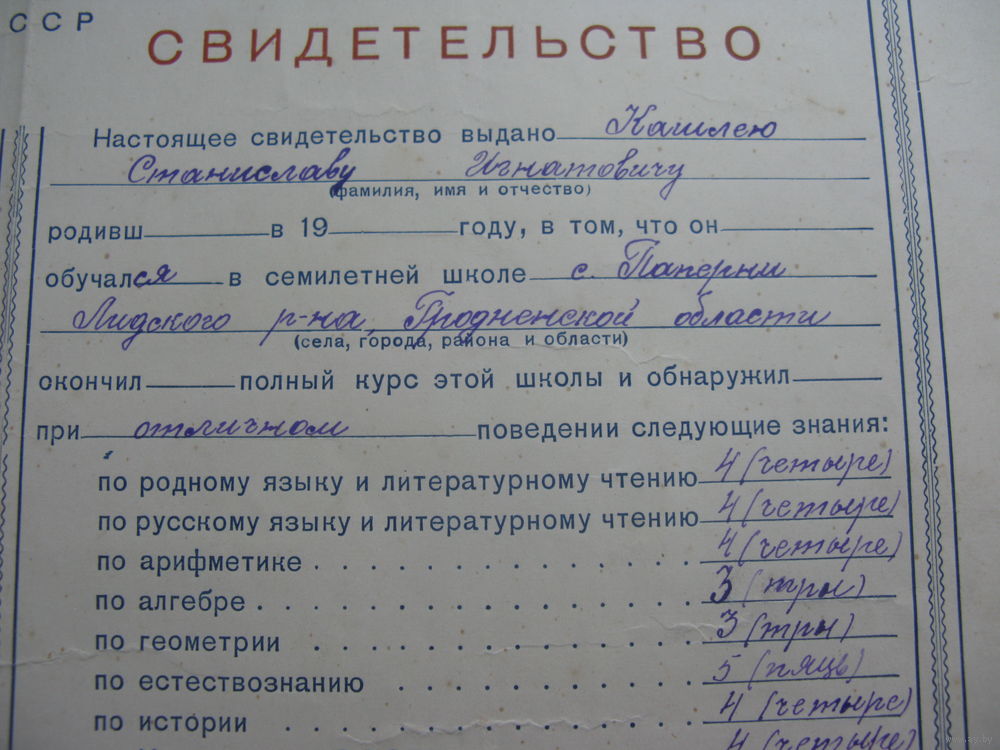 ССР
СВИДЕТЕЛЬСТВО
Настоящее свидетельство выдано Кашлею
Станиславу Игнатовичу
(фамилия, имя и отчество)
родивш в 19 году, в том, что он
обучался в семилетней школе с. Паперни
Лидского р-на, Гродненской области
(села, города, района и области)
окончил полный курс этой школы и обнаружил
при отличном поведении следующие знания:
по родному языку и литературному чтению 4 (четыре)
по русскому языку и литературному чтению 4 (четыре)
по арифметике 4 (четыре)
по алгебре 3 (три)
по геометрии 3 (три)
по естествознанию 5 (пяць)
по истории 4 (четыре)
4 (четыре)